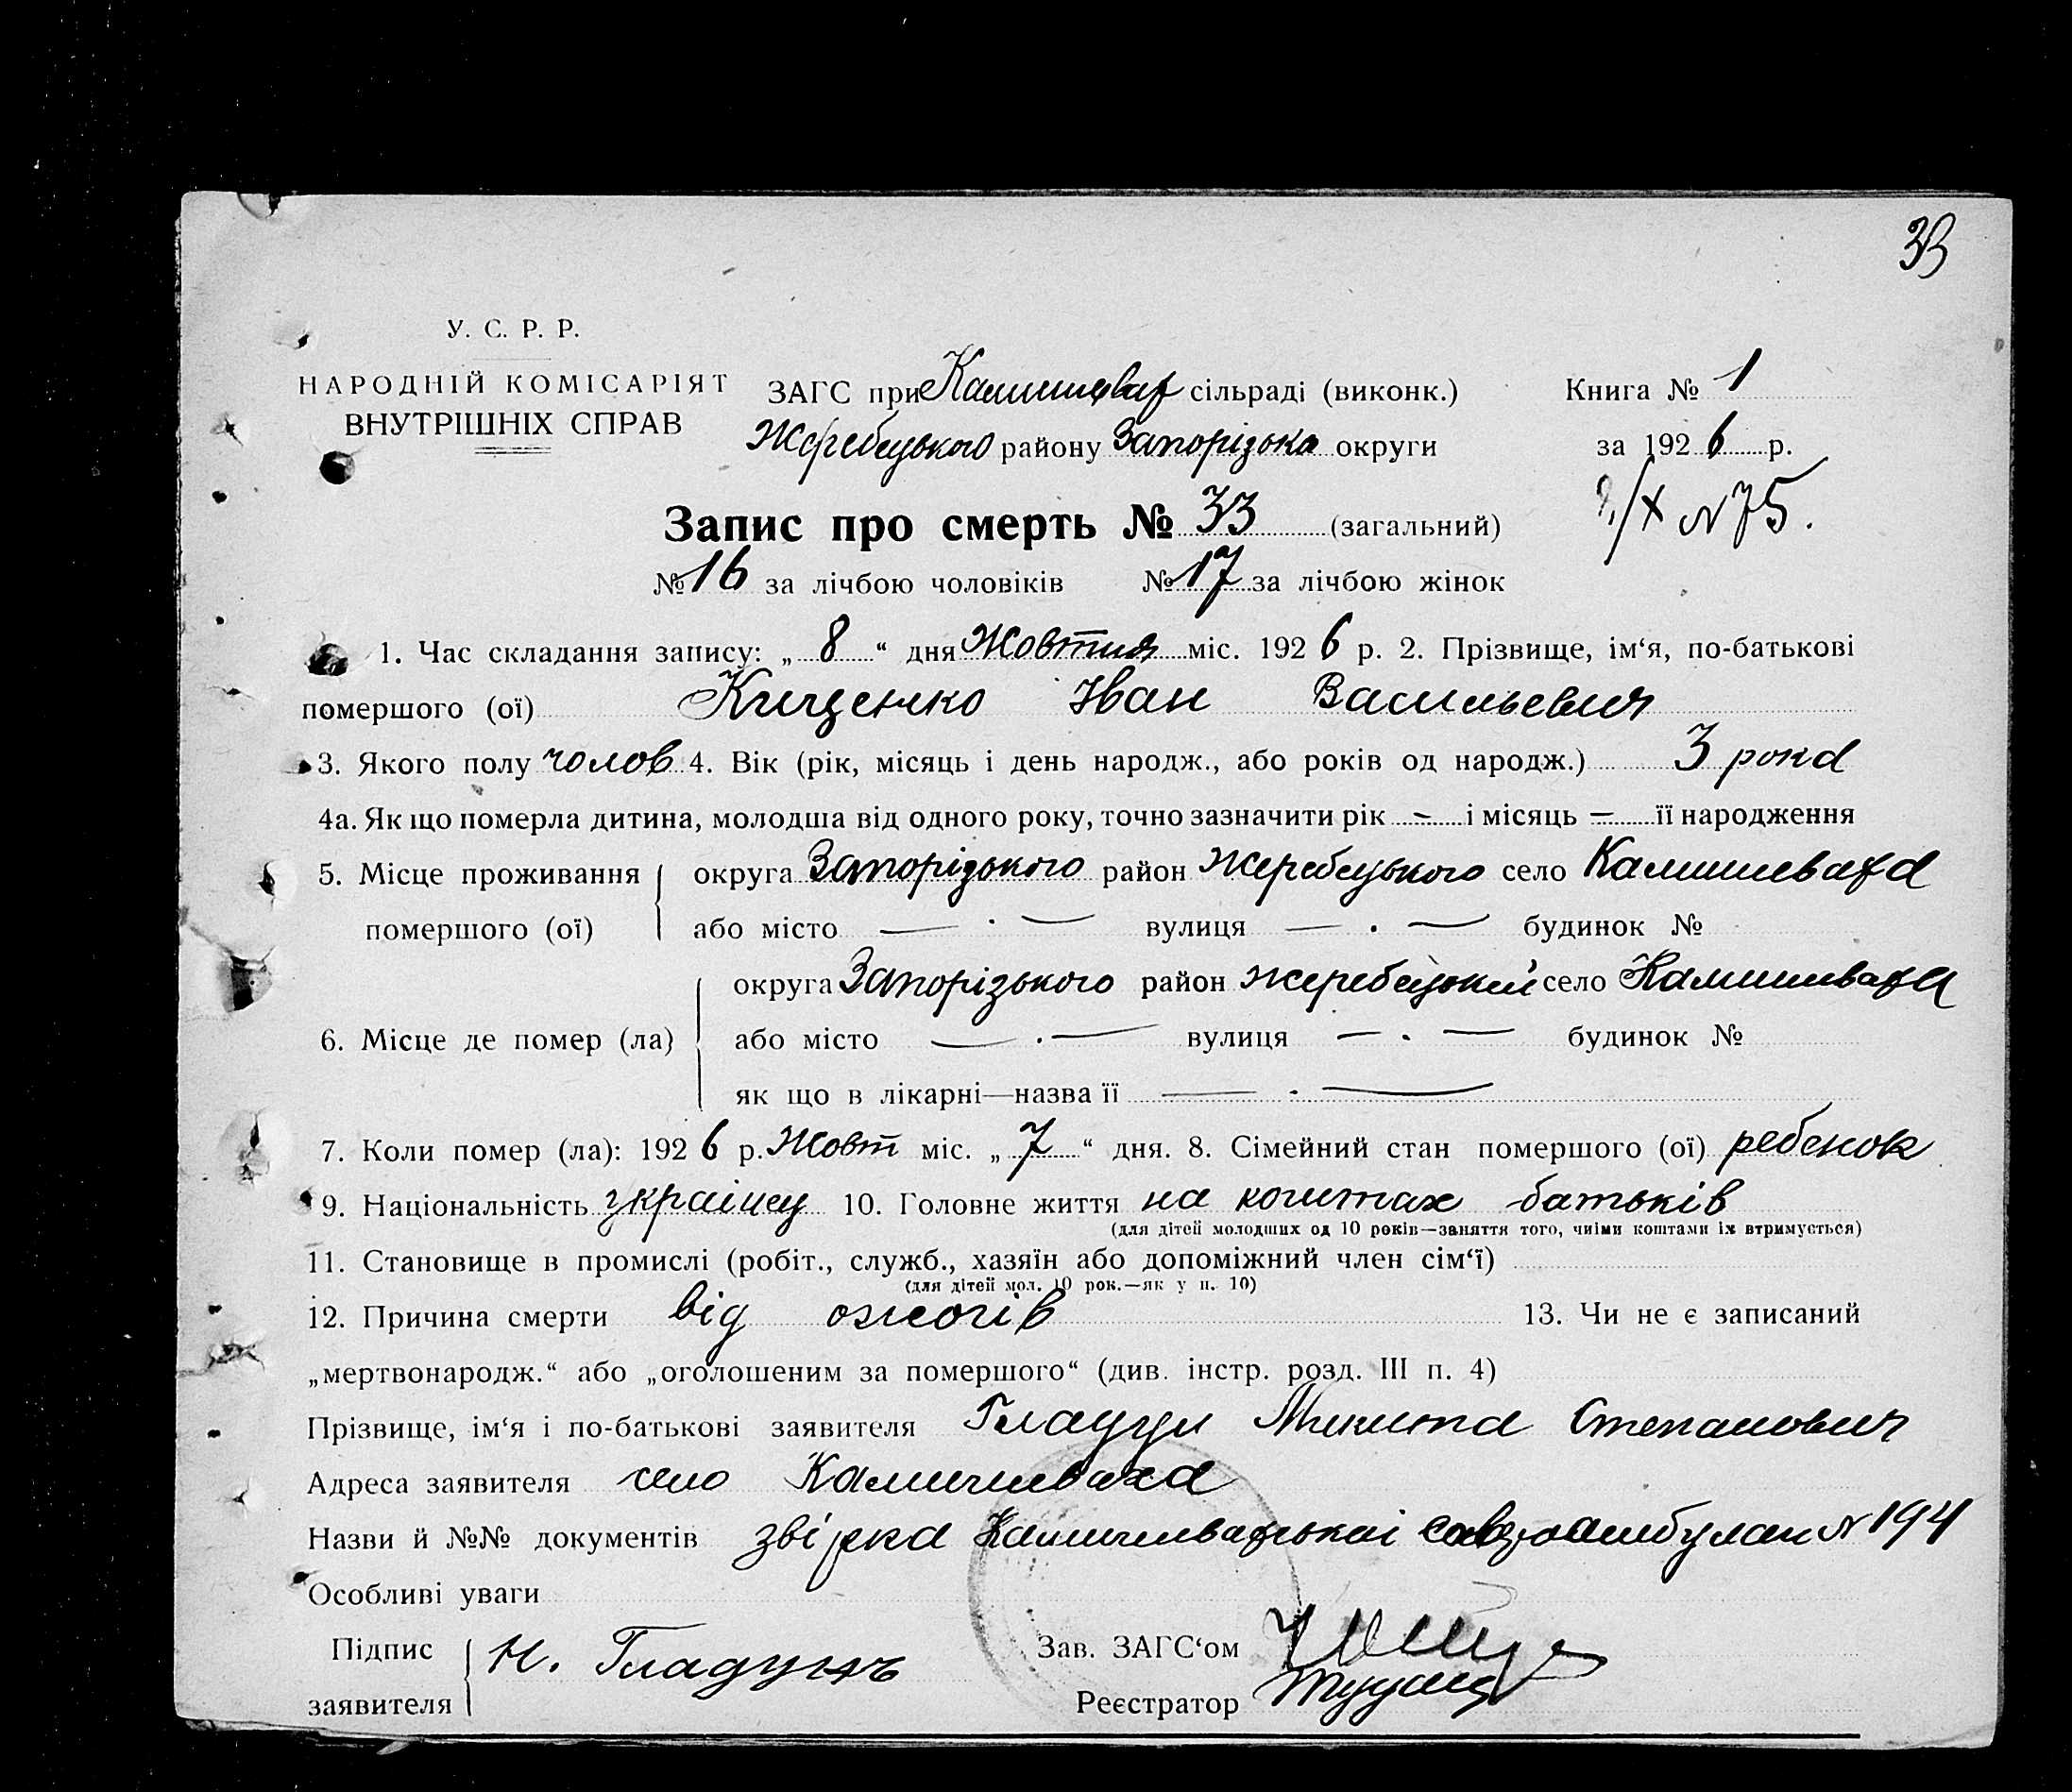 33
У. С. Р. Р.
НАРОДНІЙ КОМІСАРІЯТ
ВНУТРІШНІХ СПРАВ
ЗАГС при Камишеваг сільраді (виконк.)
Жеребецького району Запорізька округи
Книга № 1
за 1926 р.
9/X N 75.
Запис про смерть № 33 (загальний)
№ 16 за лічбою чоловіків № 17 за лічбою жінок
1. Час складання запису: „ 8 “ дня Жовтня міс. 1926 р. 2. Прізвище, ім‘я, по-батькові
помершого (ої) Кищенко Іван Васильевич
3. Якого полу чолов 4. Вік (рік, місяць і день народж., або років од народж.) 3 рока
4а. Як що померла дитина, молодша від одного року, точно зазначити рік — і місяць — її народження
5. Місце проживання помершого (ої) округа Запорізького район Жеребецького село Камишеваха
або місто — · — вулиця — · — будинок №
6. Місце де помер (ла) округа Запорізького район жеребецький село Камишеваха
або місто — · — вулиця — · — будинок №
як що в лікарні—назва її — · —
7. Коли помер (ла): 1926 р. Жовт міс. „ 7 “ дня. 8. Сімейний стан помершого (ої) ребенок
9. Національність українец 10. Головне життя на коштах батьків
(для дітей молодших од 10 років—заняття того, чиїми коштами їх втримується)
11. Становище в промислі (робіт., служб., хазяїн або допоміжний член сім‘ї)
(для дітей мол. 10 рок.—як у п. 10)
12. Причина смерти від ожогів 13. Чи не є записаний
„мертвонародж.“ або „оголошеним за помершого“ (див. інстр. розд. III п. 4)
Прізвище, ім‘я і по-батькові заявителя Гладун Микита Степанович
Адреса заявителя село Камишеваха
Назви й №№ документів звірка Камишеваської N 194
Особливі уваги
Підпис заявителя Н. Гладунъ
Зав. ЗАГС‘ом
Реєстратор